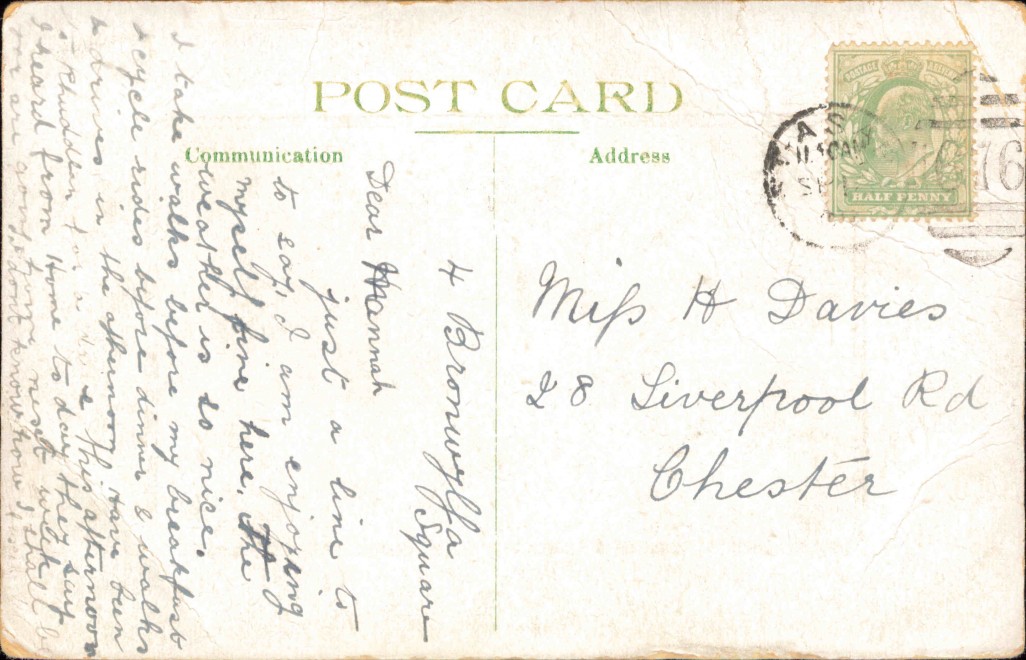 POST CARD
Communication
Address
HALF PENNY
76
Miss H Davies
28 Liverpool Rd
Chester
4 Bronwylfa
Square
Dear Hannah
just a line to
to say, I am enjoying
myself fine here. The
weather is so nice.
I take walks before my breakfast
& cycle rides before dinner & walks
& drives in the afternoon have been
in Rhuddlan for a This afternoon
I heard from Home to day they say
are going home next week
dont know how I shall